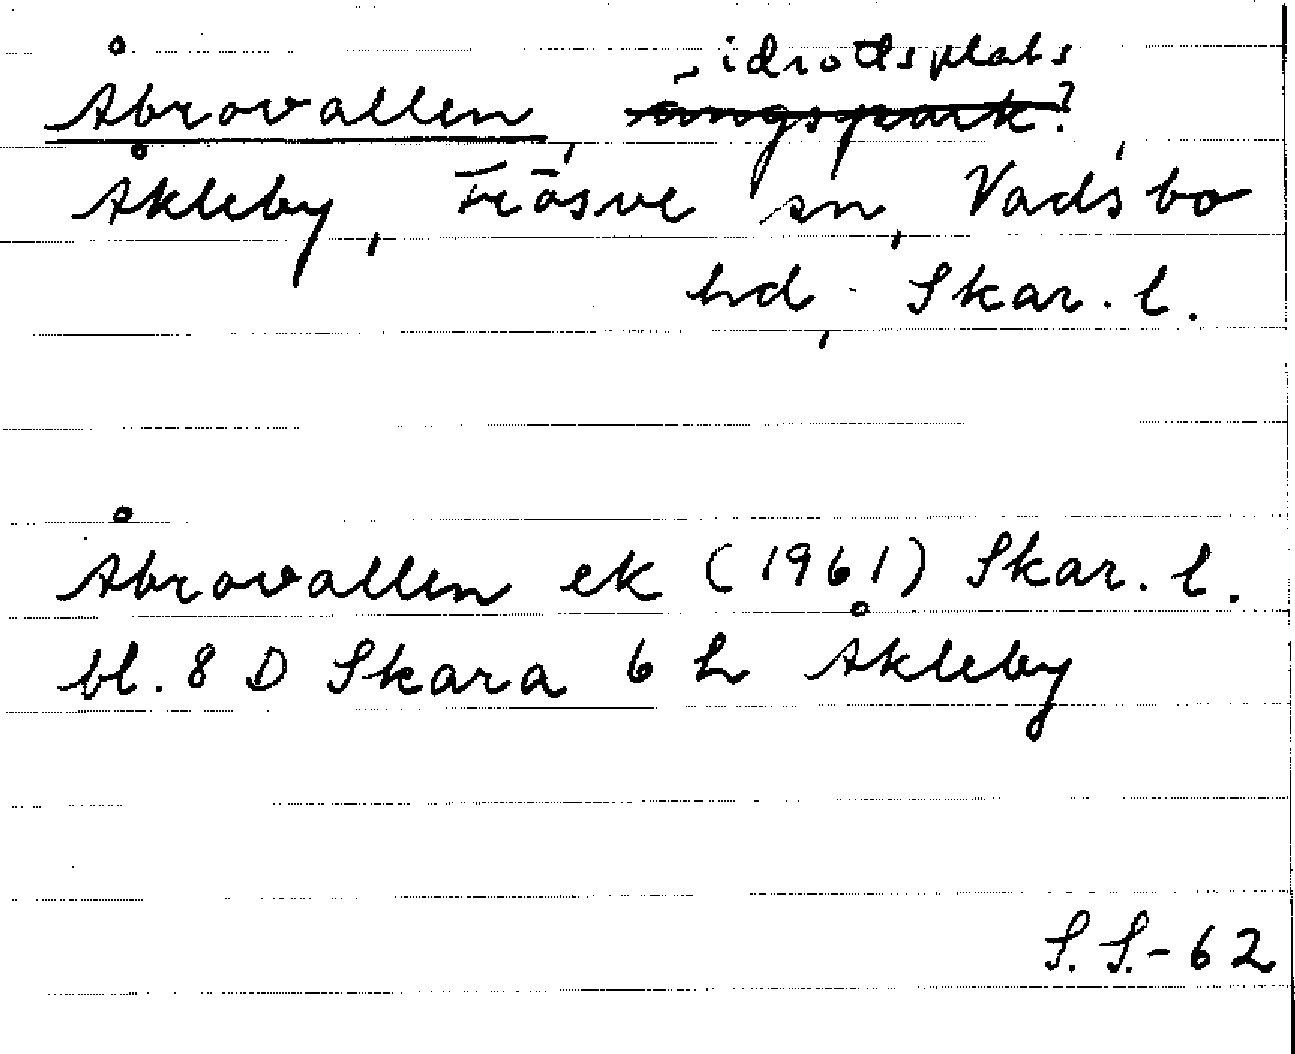 Åbrovallen, idrottsplats ?
Åkleby, Frösve sn, Vadsbo
hd, Skar. l.
Åbrovallen ek (1961) Skar. l.
bl. 8 D Skara 6 h Åkleby
S. S.-62